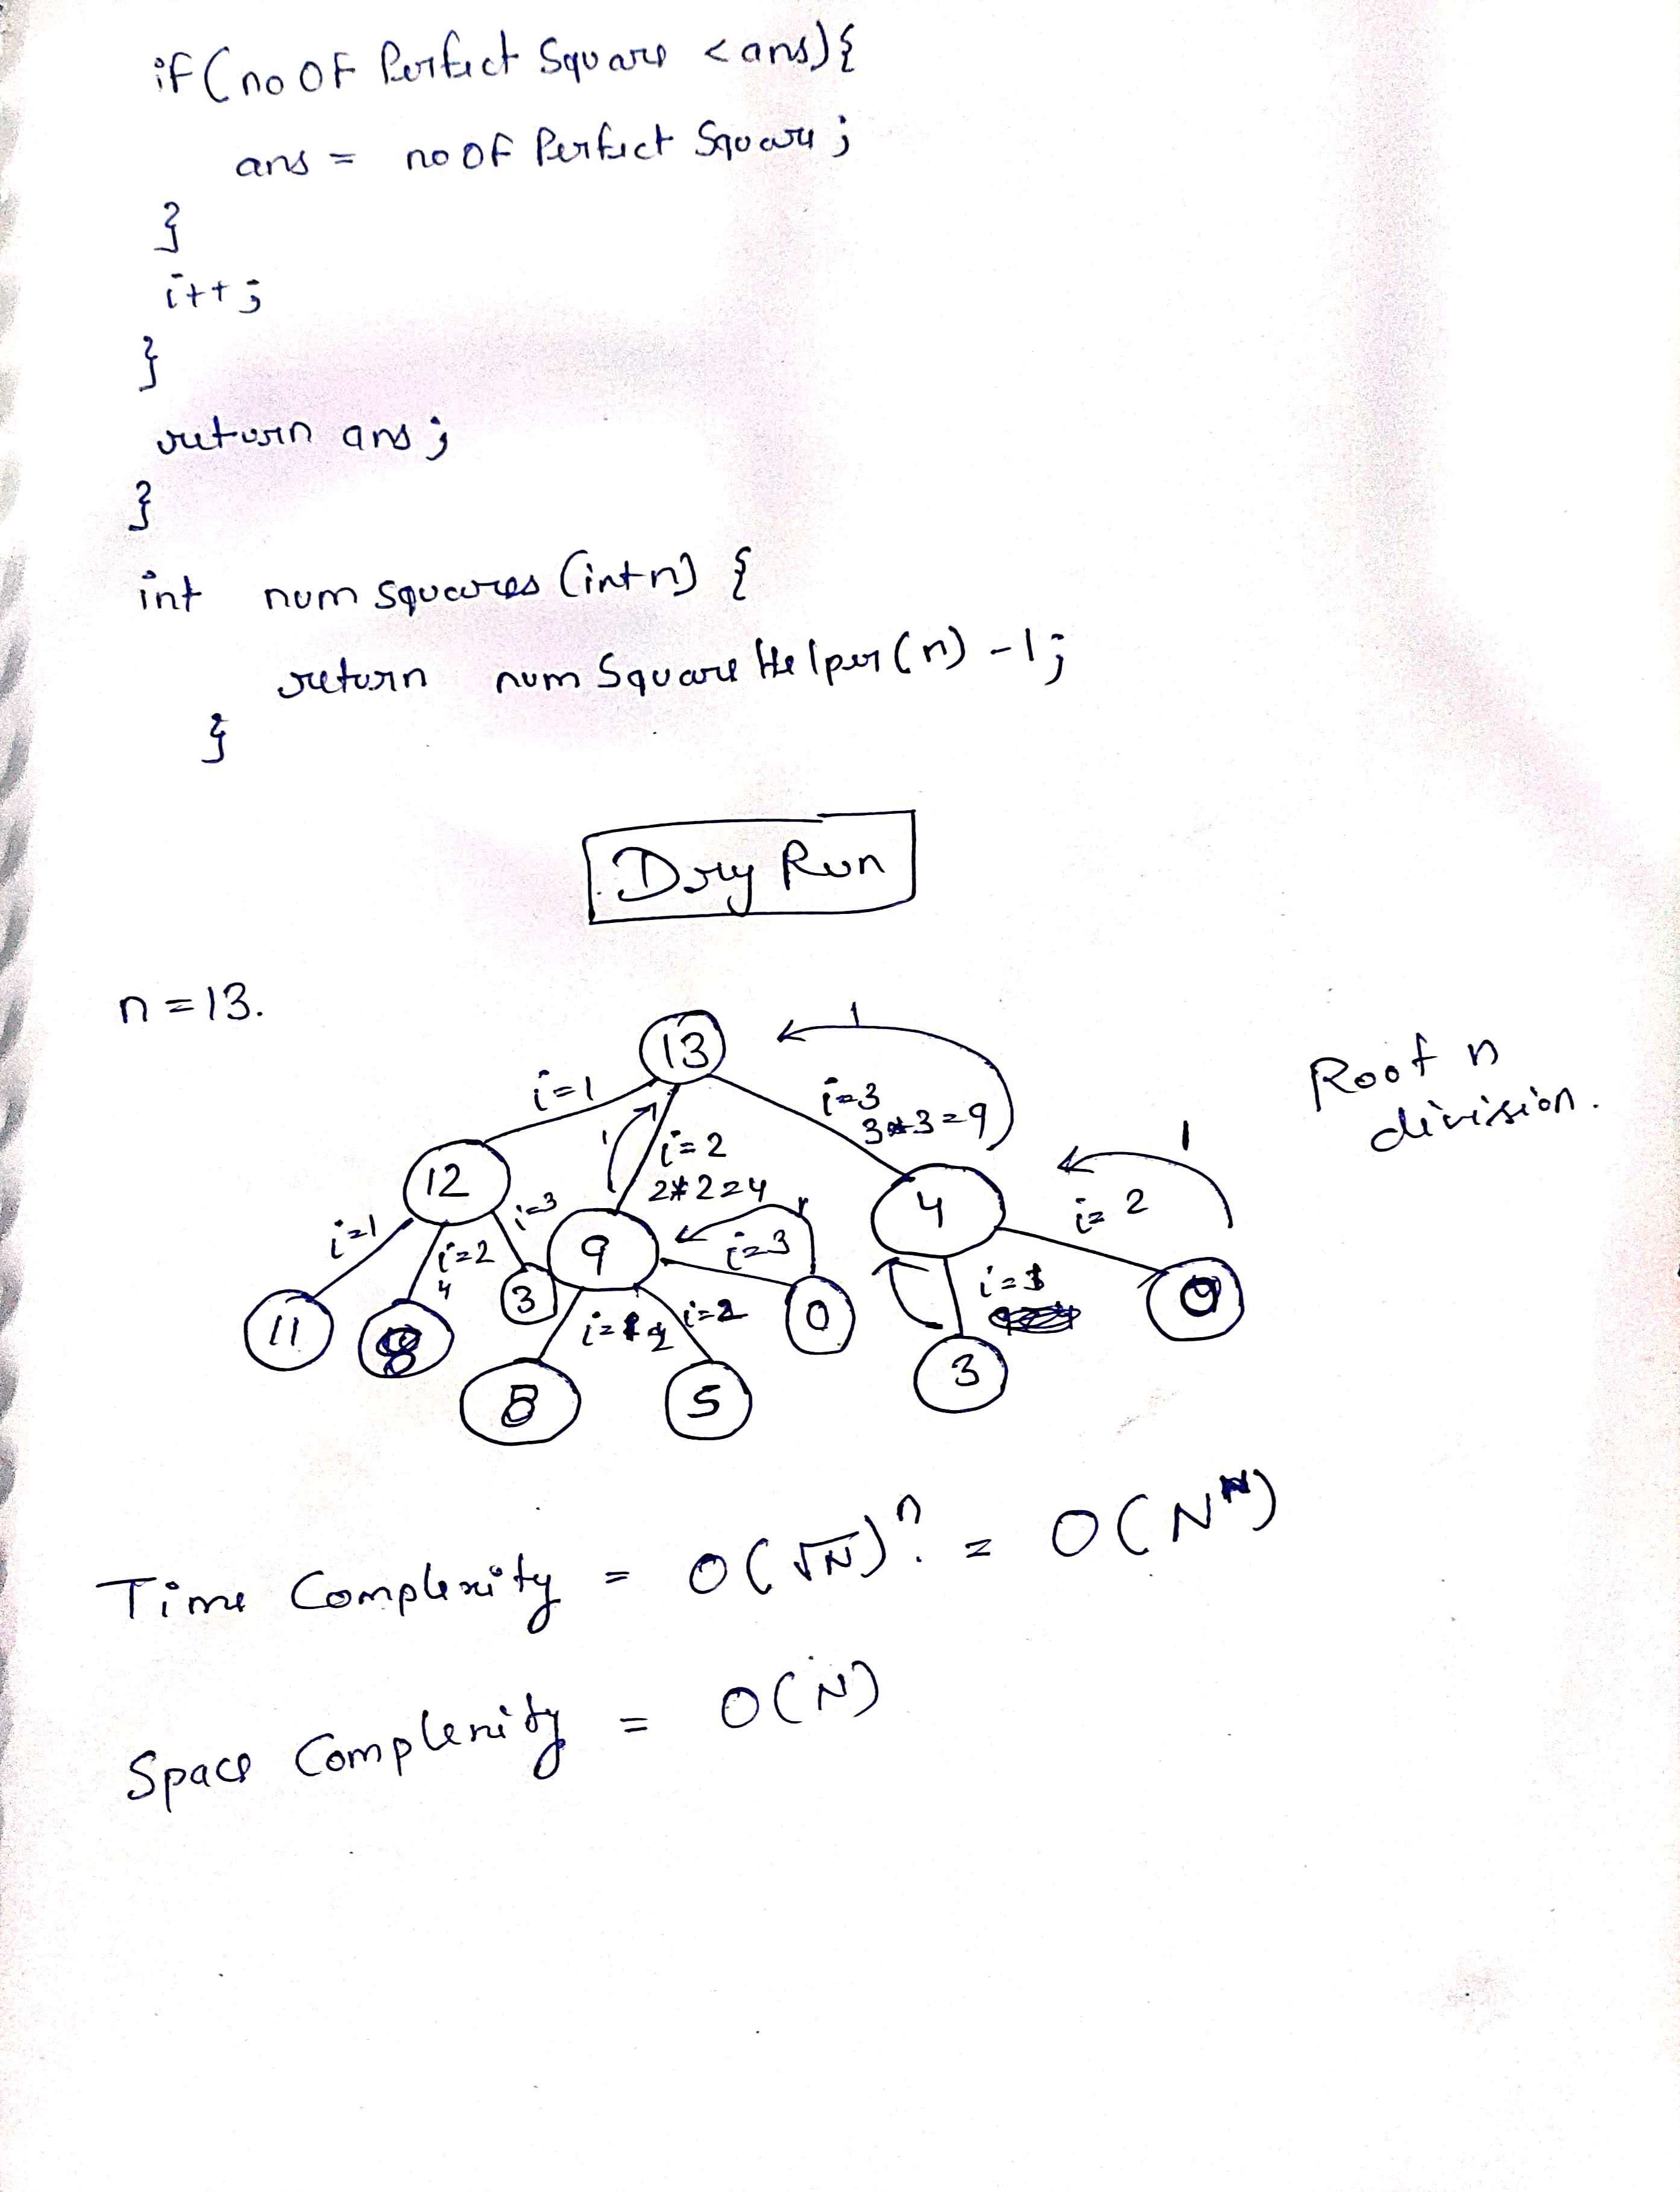 if(no OF Perfect Square < ans){
ans = no OF Perfect Square ;
}
i++ ;
}
return ans ;
}
int num squares (int n) {
return num Square Helper (n) -1 ;
}
Dry Run
n = 13.
13
1
i=1
i=2
2*2=4
i=3
3*3=9
Root n
division.
12
1
9
4
1
i=1
i=2
4
i=3
i=3
1
i=2
11
8
3
i=1
i=2
0
i=1
0
8
5
3
Time Complexity = O(√N)^n = O(N^N)
Space Complexity = O(N)